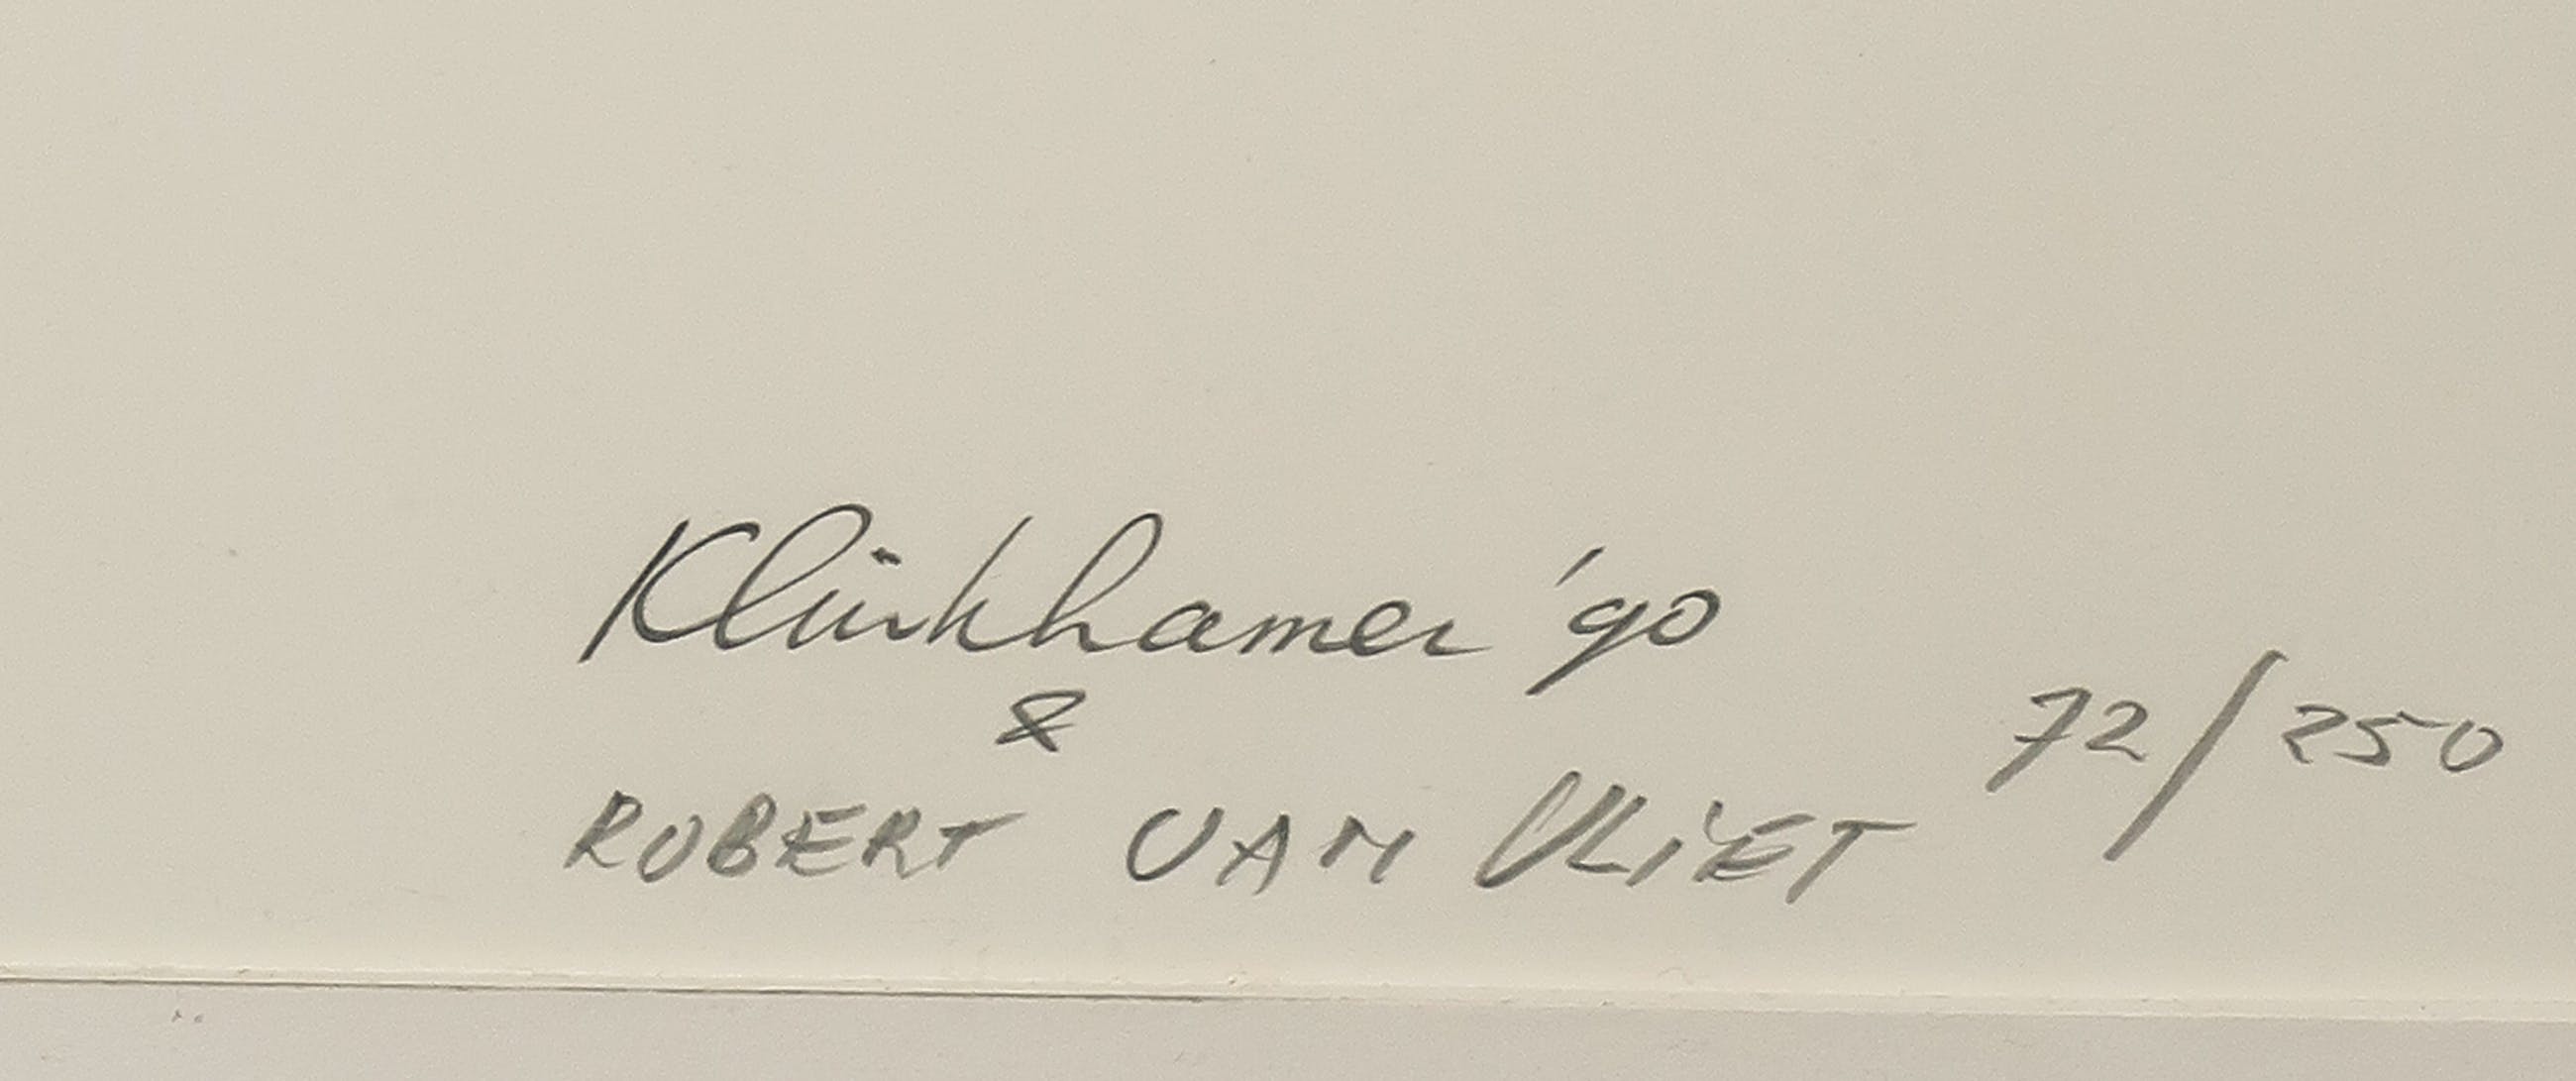 Klinkhamer '90
&
ROBERT VAN VLIET
72/250